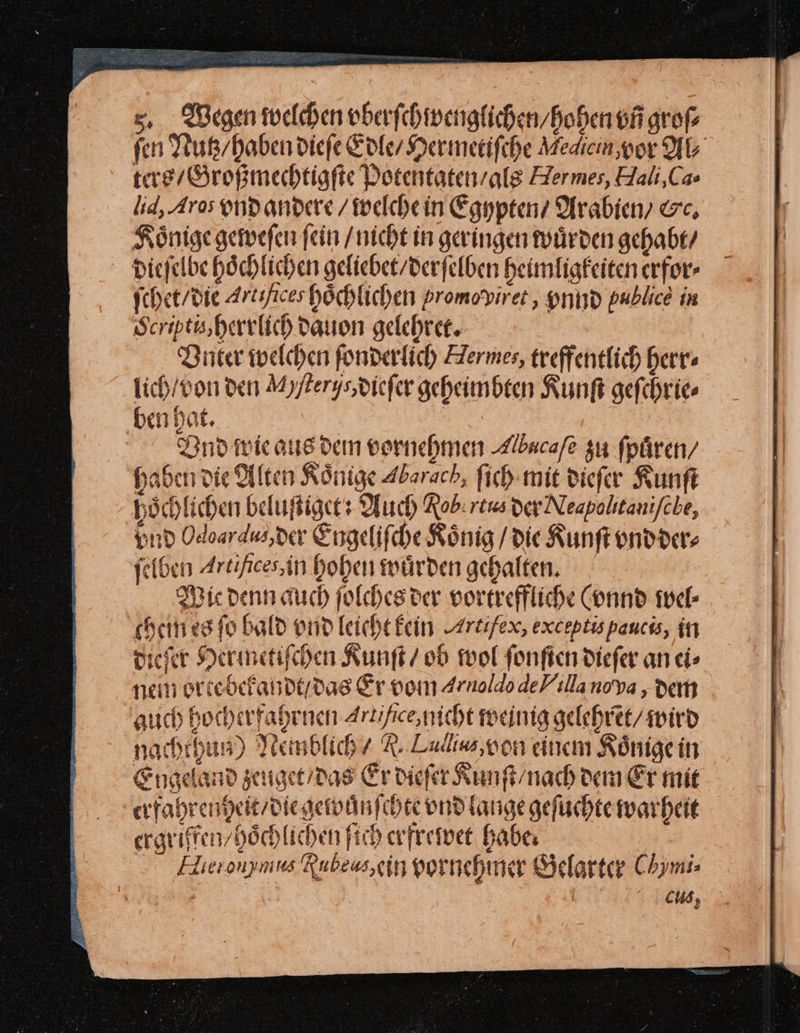 5. Wegen welchen vberſchwenglichen/hohen vñ groſ⸗
ſen Nutz/haben dieſe Edle/Hermetiſche Medicin,vor Al⸗
ters/Großmechtigſte Potentaten/als Hermes, Hali,Ca⸗
lid, Aros vnd andere / welche in Egypten/ Arabien/ &c.
Koͤnige geweſen ſein / nicht in geringen wuͤrden gehabt/
dieſelbe hoͤchlichen geliebet/derſelben heimligkeiten erfor⸗
ſchet/die Artifices hoͤchlichen promoviret, vnnd publicè in
Scriptis,herrlich dauon gelehret.
Vnter welchen ſonderlich Hermes, treffentlich herr⸗
lich/von den Myſterijs,dieſer geheimbten Kunſt geſchrie⸗
ben hat.
Vnd wie aus dem vornehmen Albucaſe zu ſpuͤren/
haben die Alten Koͤnige Abarach, ſich mit dieſer Kunſt
hoͤchlichen beluſtiget: Auch Robertus der Neapolitaniſche,
vnd Odoardus,der Engeliſche Koͤnig / die Kunſt vnd der⸗
ſelben Artifices,in hohen wuͤrden gehalten.
Wie denn auch ſolches der vortreffliche (vnnd wel⸗
chem es ſo bald vnd leicht kein Artifex, exceptis paucis, in
dieſer Hermetiſchen Kunſt / ob wol ſonſten dieſer an ei⸗
nem orte bekandt/das Er vom Arnoldo de Villa nova, dem
auch hocherfahrnen Artifice,nicht weinig gelehret/wird
nachthun) Nemblich / R. Lullius,von einem Koͤnige in
Engeland zeuget/das Er dieſer Kunſt/nach dem Er mit
erfahrenheit/die gewuͤnſchte vnd lange geſuchte warheit
ergriffen/hoͤchlichen ſich erfrewet habe.
Hieronymus Rubeus,ein vornehmer Gelarter Chymi⸗
cus,